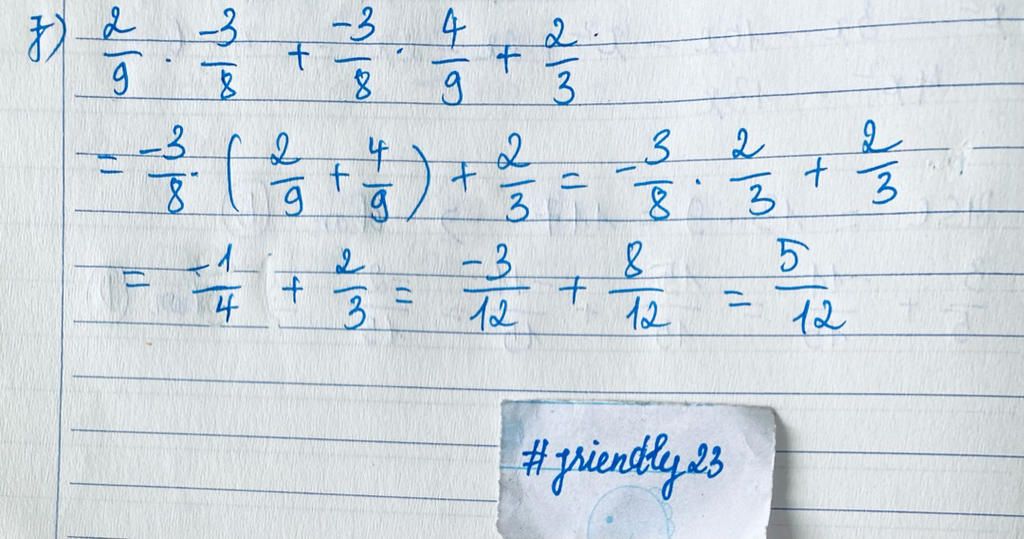 f) 2/9 · -3/8 + -3/8 · 4/9 + 2/3
= -3/8 · (2/9 + 4/9) + 2/3 = -3/8 · 2/3 + 2/3
= -1/4 + 2/3 = -3/12 + 8/12 = 5/12
#friendly23